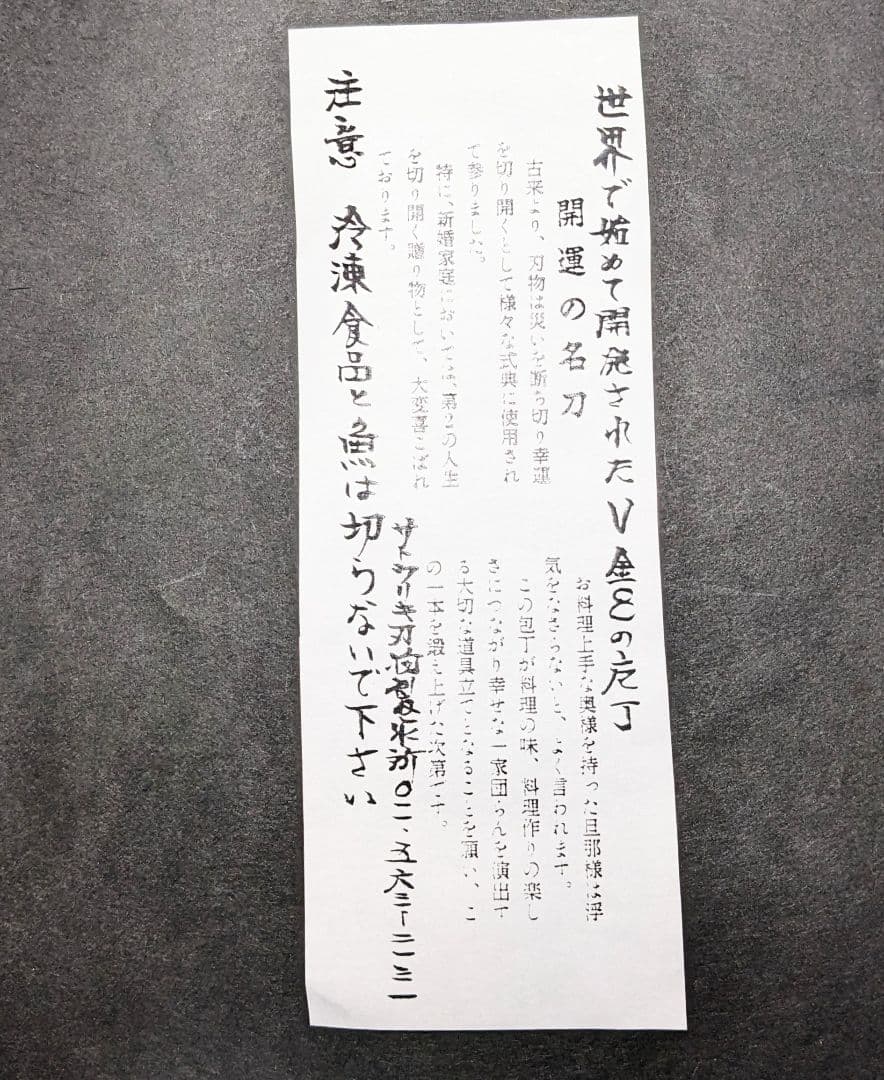 世界で始めて開発されたV金8の庖丁
開運の名刀
古来より、刃物は災いを断ち切り幸運
を切り開くとして様々な式典に使用され
て参りました。
特に、新婚家庭においては、第2の人生
を切り開く贈り物として、大変喜こばれ
ております。
お料理上手な奥様を持った旦那様は浮
気をなさらないと、よく言われます。
この包丁が料理の味、料理作りの楽し
さにつながり幸せな一家団らんを演出す
る大切な道具立てとなることを願い、こ
の一本を鍛え上げた次第です。
刃物製作所
注意 冷凍食品と魚は切らないで下さい